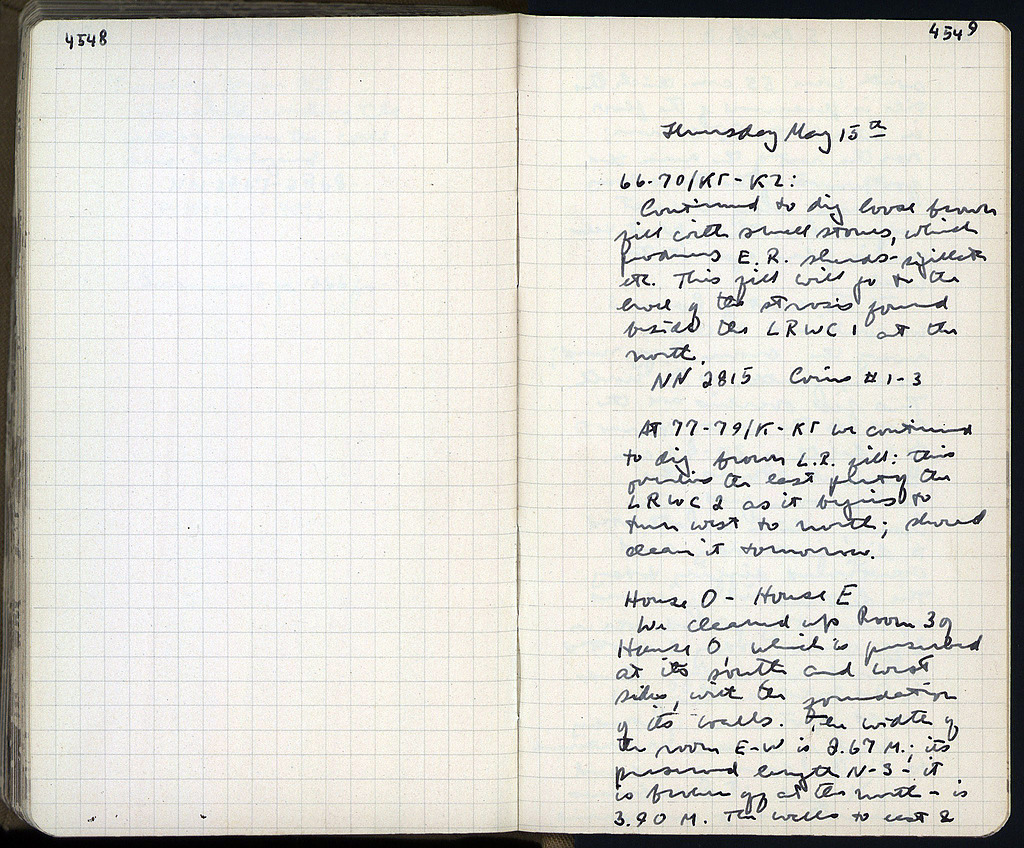 4548
4549
Thursday May 15th
66-70/ΚΓ-ΚΖ:
Continued to dig loose brown
fill with small stones, which
produces E.R. sherds - sigillata
etc. This fill will go to the
level of the strosis found
beside the LRWC 1 at the
north.
NN 2815 Coins #1-3
At 77-79/Κ-ΚΓ we continued
to dig brown L.R. fill: this
overlies the last part of the
LRWC 2 as it begins to
turn west to north; should
clean it tomorrow.
House O - House E
We cleaned up Room 3 of
House O, which is preserved
at its south and west
sides, with the foundation
of its walls. The width of
the room E-W is 2.67 M.; its
preserved length N-S - it
is broken off at the north - is
3.90 M. The walls to east &